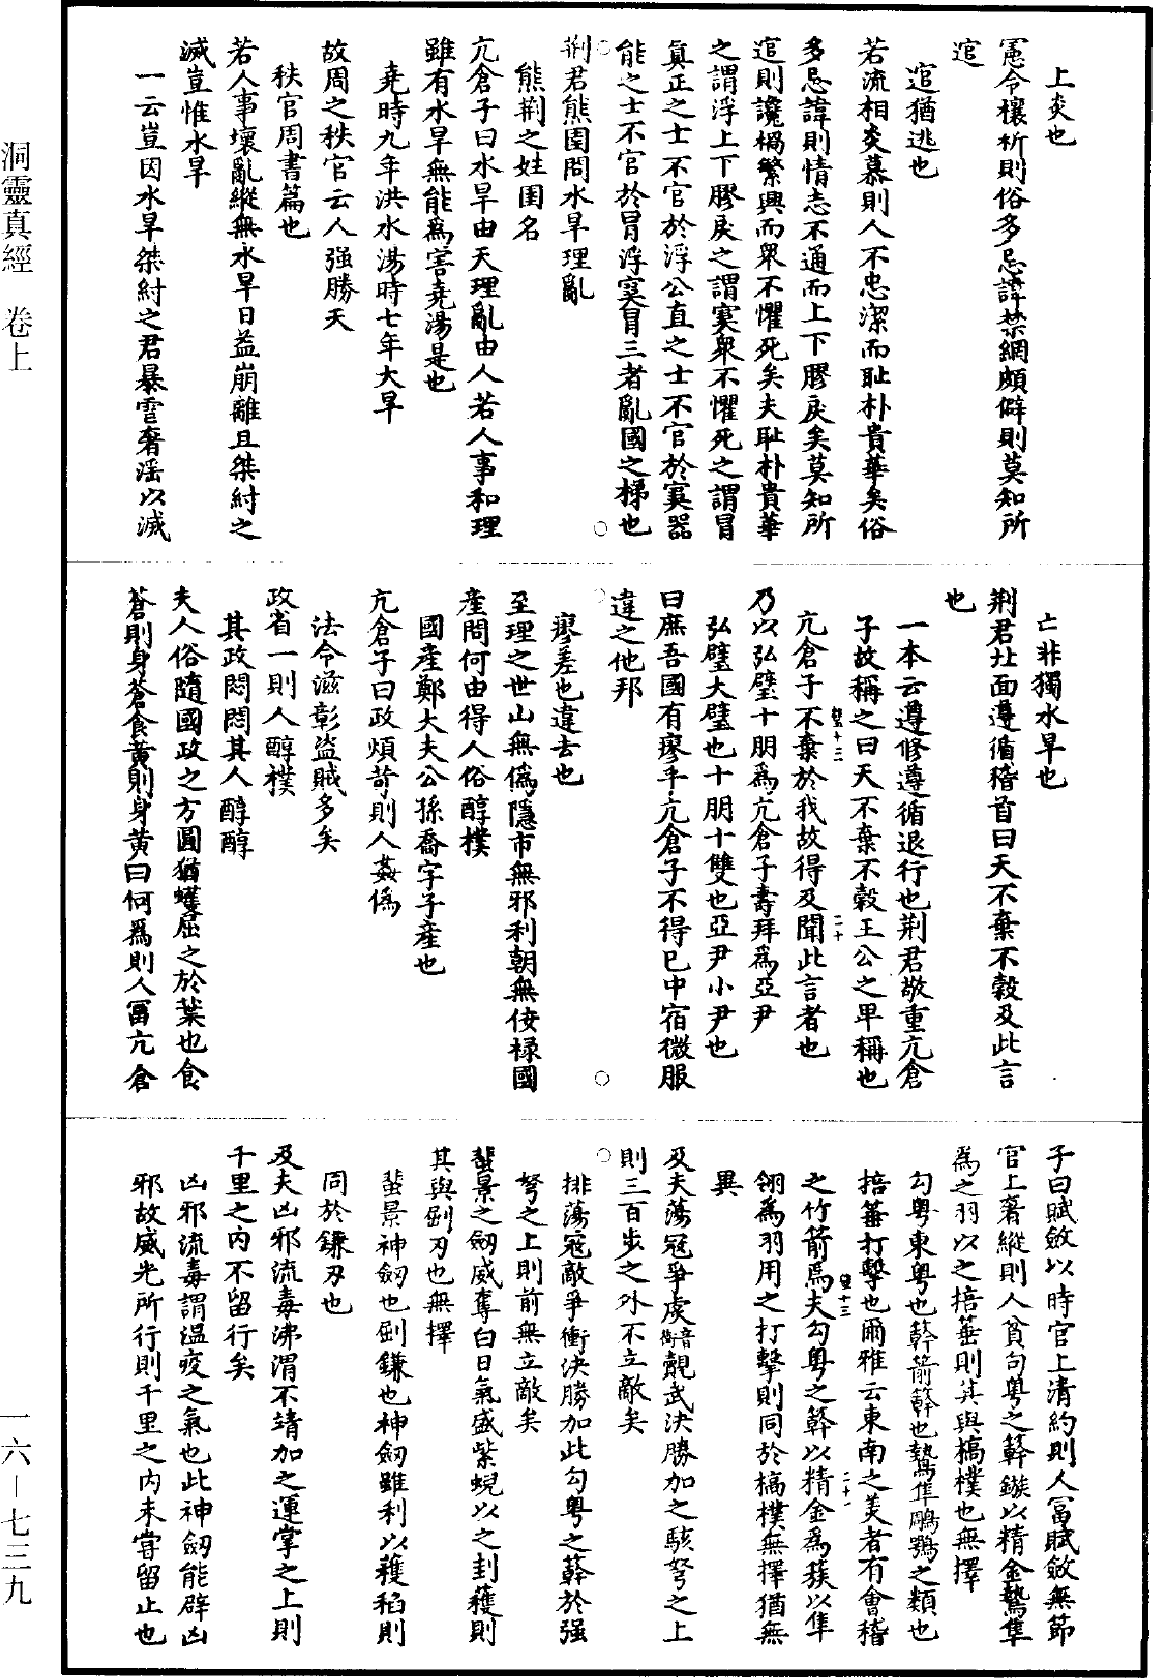 上炎也
憲令禳祈則俗多忌諱禁網頗僻則莫知所
逭
逭猶逃也
若流相炎慕則人不忠潔而耻朴貴華矣俗
多忌諱則情志不通而上下膠戾矣莫知所
逭則讒禍繁興而衆不懼死矣夫耻朴貴華
之謂浮上下膠戾之謂寞衆不懼死之謂冒
真正之士不官於浮公直之士不官於寞器
能之士不官於冒浮寞冒三者亂國之梯也
荆君熊圉問水旱理亂
熊荆之姓圉名
亢倉子曰水旱由天理亂由人若人事和理
雖有水旱無能爲害堯湯是也
堯時九年洪水湯時七年大旱
故周之秩官云人强勝天
秩官周書篇也
若人事壞亂縱無水旱日益崩離且桀紂之
滅豈惟水旱
一云豈因水旱桀紂之君暴雪奢滛以滅
亡非獨水旱也
荆君北面遵循稽首曰天不棄不穀及此言
也
一本云遵修遵循退行也荆君敬重亢倉
子故稱之曰天不棄不穀王公之卑稱也
亢倉子不棄於我故得及聞此言者也
乃以弘璧十朋爲亢倉子壽拜爲亞尹
弘璧大璧也十朋十雙也亞尹小尹也
曰庶吾國有瘳乎亢倉子不得已中宿微服
違之他邦
瘳差也違去也
至理之世山無僞隱市無邪利朝無佞禄國
産問何由得人俗醇樸
國産鄭大夫公孫喬字子産也
亢倉子曰政煩苛則人姦僞
法令滋彰盗賊多矣
政省一則人醇樸
其政悶悶其人醇醇
夫人俗隨國政之方圓猶蠖屈之於葉也食
蒼則身蒼食黄則身黄曰何爲則人富亢倉
子曰賦斂以時官上清約則人富賦斂無節
官上奢縱則人貧勾粤之簳鏃以精金鷙隼
爲之羽以之掊箠則其與槁樸也無擇
勾粤東粤也簳箭簳也鷙隼鵰鶚之類也
掊箠打擊也爾雅云東南之美者有會稽
之竹箭焉夫勾粤之簳以精金爲簇以隼
翎爲羽用之打擊則同於槁樸無擇猶無
異
及夫蕩寇爭虔音衝覿武決勝加之駭弩之上
則三百步之外不立敵矣
排蕩寇敵爭衝決勝加此勾粤之簳於强
弩之上則前無立敵矣
蜚景之劒威奪白日氣盛紫蜺以之刲穫則
其與劊刃也無擇
蜚景神劒也劊鎌也神劒雖利以穫稻則
同於鎌刃也
及夫凶邪流毒沸渭不靖加之運掌之上則
千里之内不留行矣
凶邪流毒謂温疫之氣也此神劒能辟凶
邪故威光所行則千里之内未甞留止也
洞靈真經　卷上
一六－七三九